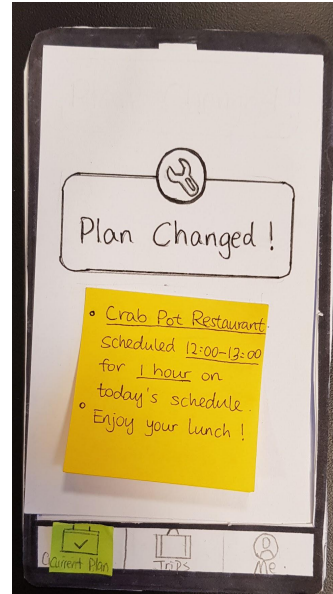 Plan Changed !
• Crab Pot Restaurant.
scheduled 12:00-13:00
for 1 hour on
today's schedule.
• Enjoy your lunch !
Current Plan
Trips
Me.